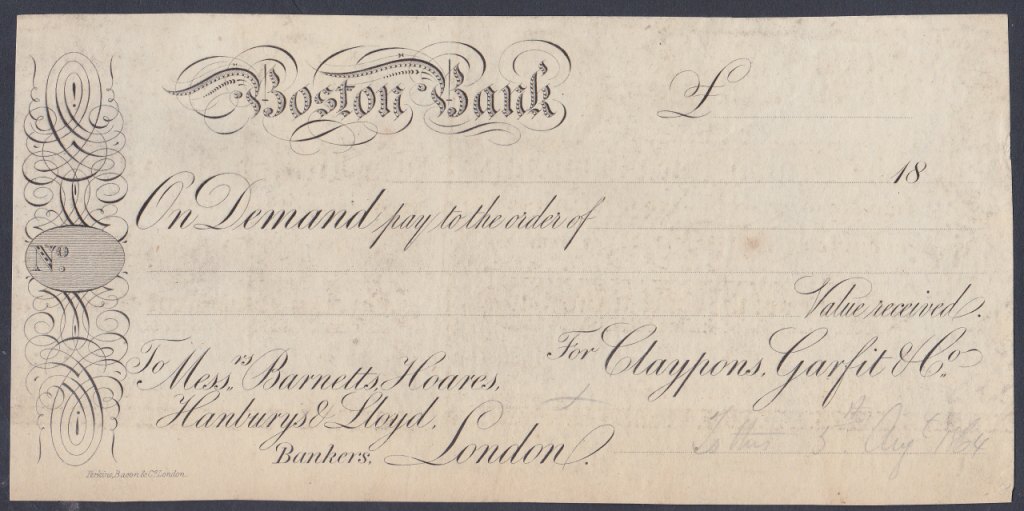 Boston Bank £
18
On Demand pay to the order of
No.
Value received.
To Messrs Barnetts, Hoares,
For Claypons, Garfit & Co.
Hanburys & Lloyd,
Bankers, London.
To this 3th Aug 1864
Perkins, Bacon & Co. London.